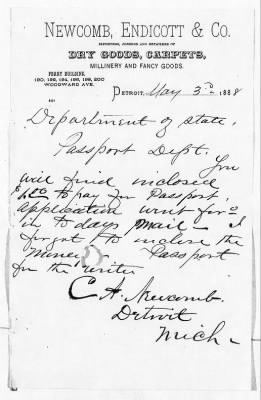 NEWCOMB, ENDICOTT & CO.
IMPORTERS, JOBBERS AND RETAILERS OF
DRY GOODS, CARPETS,
MILLINERY AND FANCY GOODS.
FERRY BUILDING,
190, 192, 194, 196, 198, 200
WOODWARD AVE.
DETROIT, May 3rd 1888
Department of state.
Passport Dept.
You
will find inclosed
to pay for Passport,
application went for'd
in to days mail - I
forgot to inclose the
Money Passport
for the writer
C A Newcomb.
Detroit
Mich -